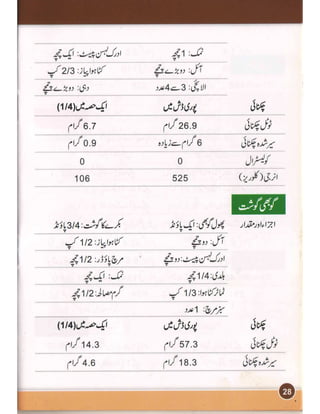 نمک: 1 چمچہ ادرک لہسن پیسٹ: ایک چمچہ
آئل: دو بڑے چمچے کٹا ہوا پیاز: 2/3 کپ
الائچی: 3 سے 4 عدد دہی: دو بڑے چمچے
چکنائی پوری ڈش میں ایک حصہ میں (1/4)
ٹوٹل چکنائی 26.9 گرام 6.7 گرام
سیر شدہ چکنائی 6 گرام سے زیادہ 0.9 گرام
کولیسٹرال 0 0
انرجی (کلوریز) 525 106
گوبھی گوشت
اجزاء اور مقدار پھول گوبھی: ایک پاؤنڈ بکرے کا گوشت: 3/4 پاؤنڈ
آئل: دو چمچے کٹا ہوا پیاز: 1/2 کپ
ادرک لہسن پیسٹ: دو چمچے مرچ پاؤڈر: 1/2 چمچہ
ہلدی: 1/4 چمچہ نمک: ایک چمچہ
ٹماٹر کٹا ہوا: 1/3 کپ گرم مصالحہ: 1/2 چمچہ
سبز مرچ: 1 عدد
چکنائی پوری ڈش میں ایک حصہ میں (1/4)
ٹوٹل چکنائی 57.3 گرام 14.3 گرام
سیر شدہ چکنائی 18.3 گرام 4.6 گرام
28